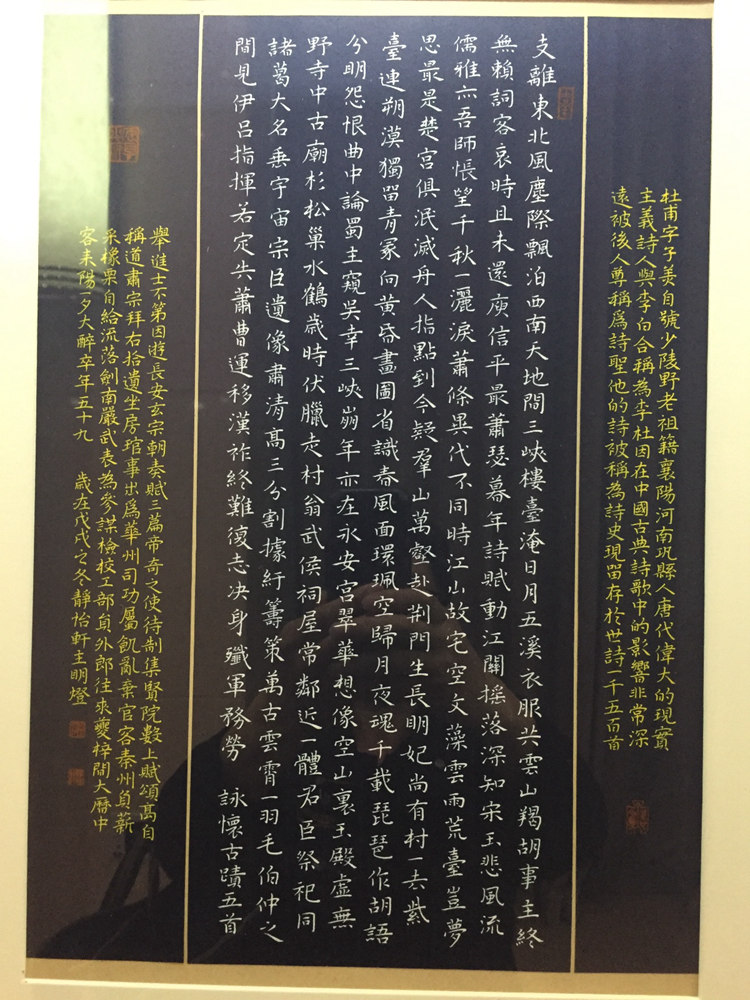 杜甫字子美自號少陵野老祖籍襄陽河南巩縣人唐代偉大的現實
主義詩人與李白合稱為李杜因在中國古典詩歌中的影響非常深
遠被後人尊稱爲詩聖他的詩被稱為詩史現留存於世詩一千五百首
支離東北風塵際飄泊西南天地間三峽樓臺淹日月五溪衣服共雲山羯胡事主終
無賴詞客哀時且未還庾信平最蕭瑟暮年詩賦動江關搖落深知宋玉悲風流
儒雅亦吾師悵望千秋一灑淚蕭條異代不同時江山故宅空文藻雲雨荒臺豈夢
思最是楚宮俱泯滅舟人指點到今疑羣山萬壑赴荆門生長明妃尚有村一去紫
臺連朔漠獨留青冢向黄昏畫圖省識春風面環珮空歸月夜魂千載琵琶作胡語
分明怨恨曲中論蜀主窺吳幸三峽崩年亦在永安宮翠華想像空山裏玉殿虛無
野寺中古廟杉松巢水鶴歲時伏臘走村翁武侯祠屋常鄰近一體君臣祭祀同
諸葛大名垂宇宙宗臣遺像肅清高三分割據紆籌策萬古雲霄一羽毛伯仲之
間見伊吕指揮若定失蕭曹運移漢祚終難復志決身殲軍務勞 詠懷古蹟五首
舉進士不第因遊長安玄宗朝奏賦三篇帝奇之使待制集賢院數上賦頌高自
稱道肅宗拜右拾遺坐房琯事出爲華州司功屬飢亂棄官客秦州負薪
采橡栗自給流落劍南嚴武表為參謀檢校工部員外郎往來夔梓間大曆中
客耒陽一夕大醉卒年五十九 歲在戊戌之冬靜怡軒主明燈